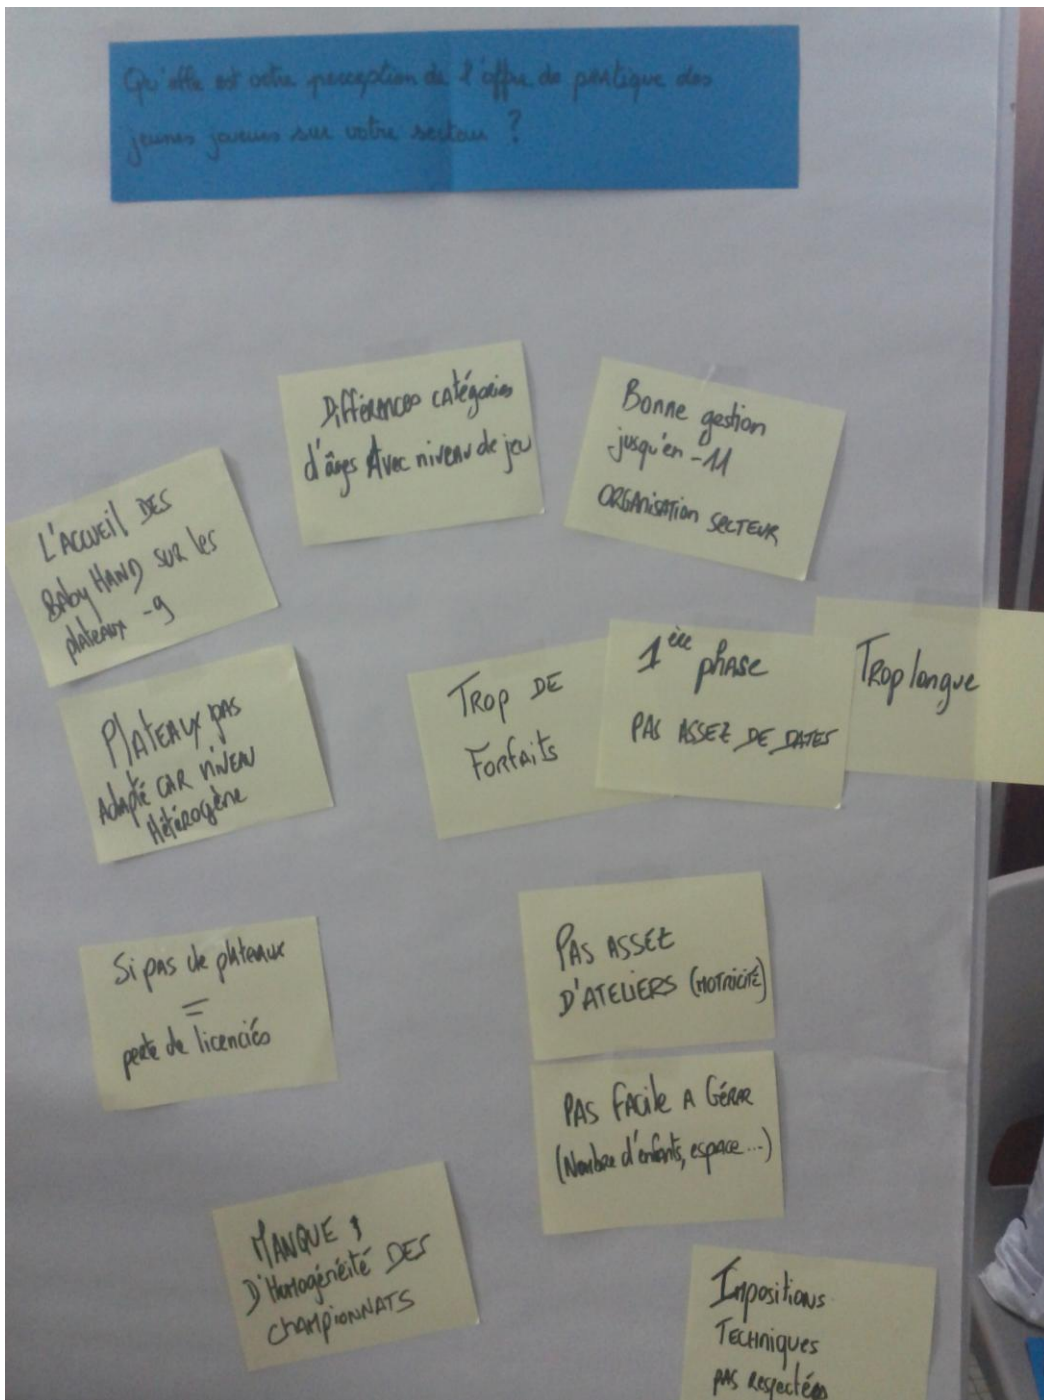 Qu'elle est votre perception de l'offre de pratique des
jeunes joueurs sur votre secteur ?
Différences catégories
d'âges Avec niveau de jeu
Bonne gestion
jusqu'en -11
ORGANISATION SECTEUR
L'ACCUEIL DES
BAby HAND SUR les
plateaux -9
PlATEAUX pas
Adapté CAR NIVEAU
Hétérogène
TROP DE
Forfaits
1ère phase
PAS ASSEZ DE DATES
TROP longue
Si pas de plateaux
=
perte de licenciés
PAS ASSEZ
D'ATELIERS (MOTRICITÉ)
PAS FACILE A GÉRER
(Nombre d'enfants, espace...)
MANQUE
D'Homogénéité DES
CHAMPIONNATS
Impositions
TECHNIQUES
pas respectées